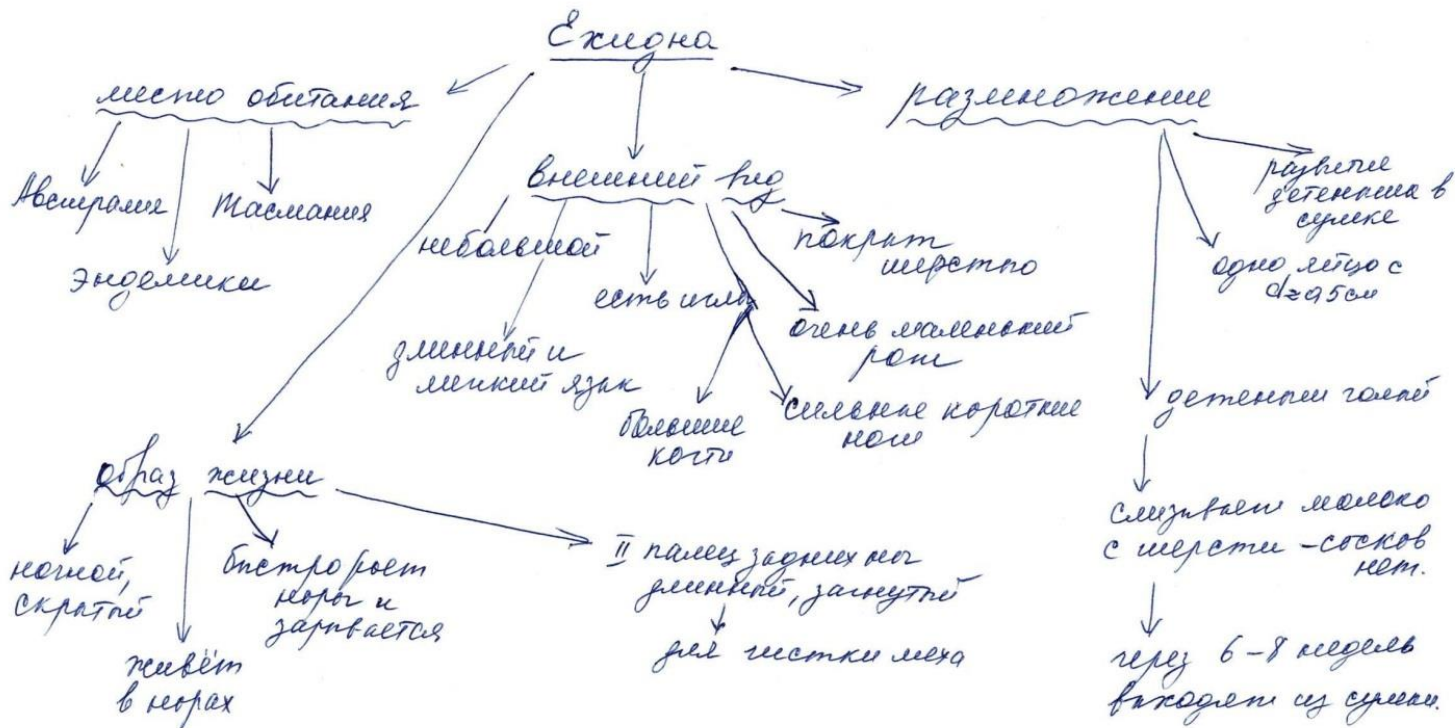 Ехидна
место обитания
Австралия
Эндемики
Тасмания
внешний вид
небольшой
длинный и
липкий язык
есть иглы
большие
когти
сильные короткие
ноги
очень маленький
рот
покрыт
шерстью
размножение
развитие
детеныша в
сумке
одно яйцо с
детеныш голый
слизывает молоко
с шерсти - сосков
нет.
через 6-8 недель
выходят из сумки.
образ жизни
ночной,
скрытый
живёт
в норах
быстро роет
норы и
зарывается
II палец задних ног
длинный, загнутый
для чистки меха